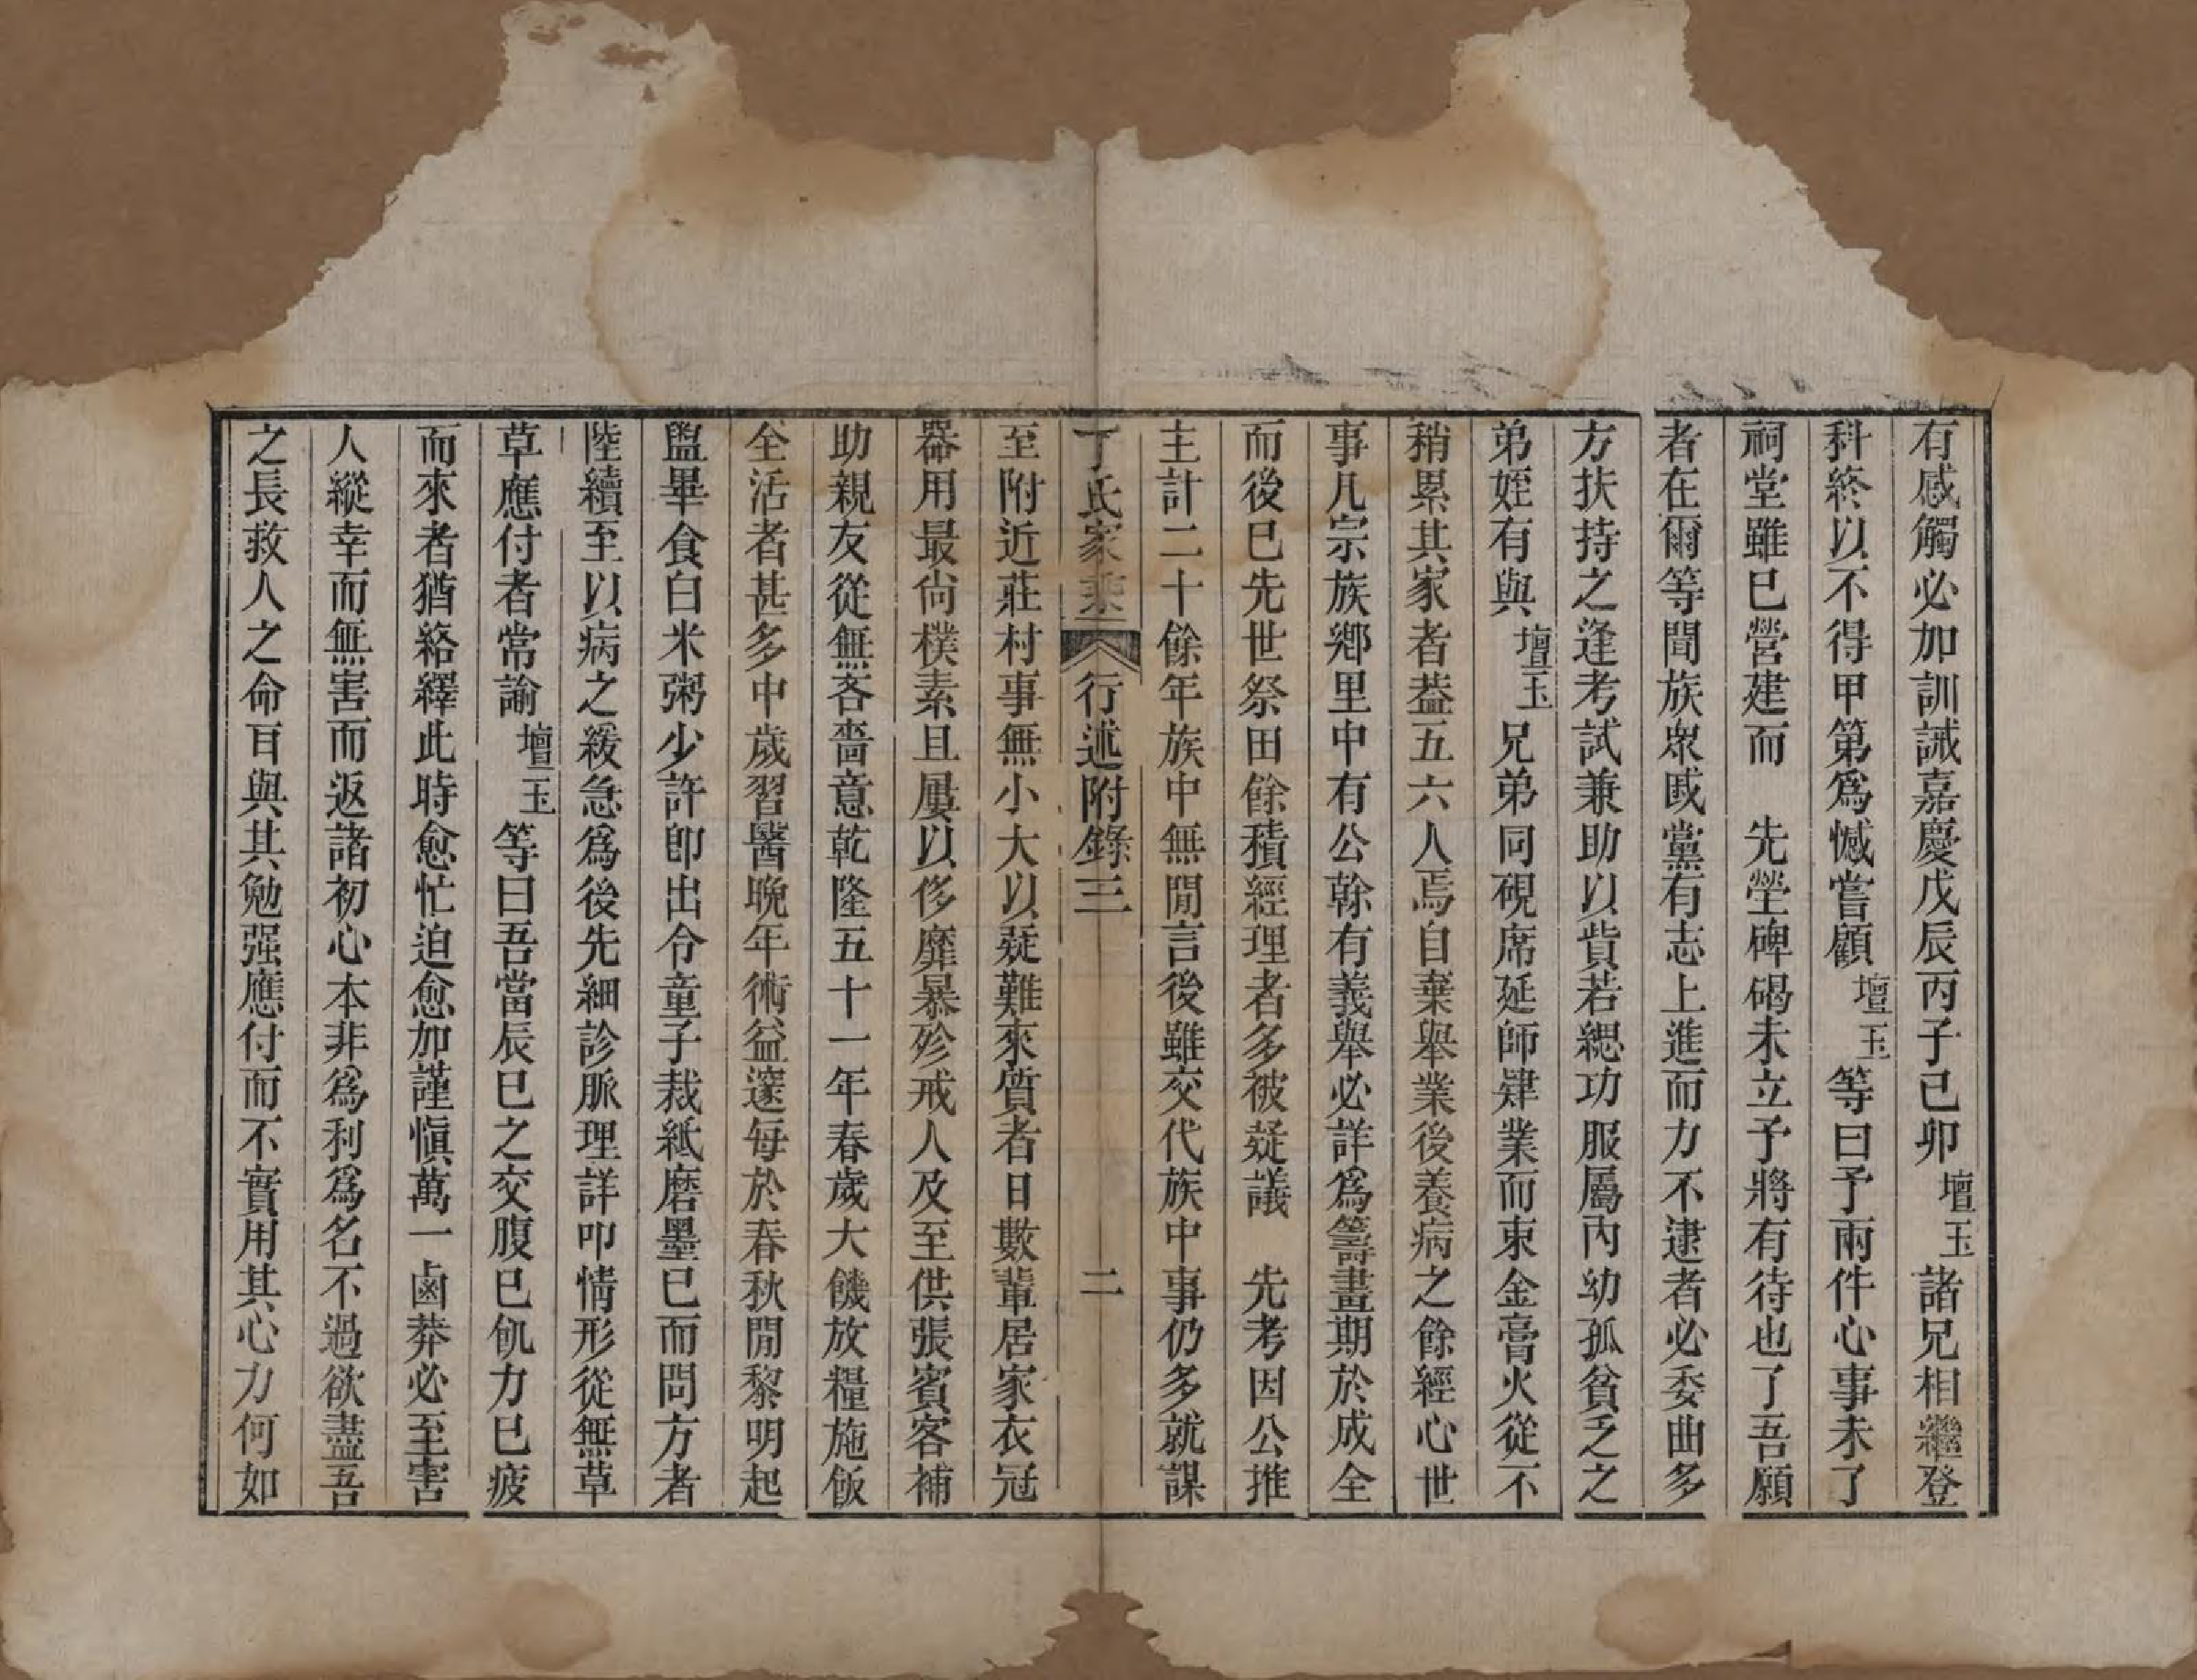 有感觸必加訓誡嘉慶戊辰丙子己卯壇玉諸兄相繼登
科終以不得甲第爲憾嘗顧壇玉等曰予兩件心事未了
祠堂雖已營建而　先塋碑碣未立予將有待也了吾願
者在爾等間族眾戚黨有志上進而力不逮者必委曲多
方扶持之逢考試兼助以貲若緦功服屬內幼孤貧乏之
弟姪有與壇玉兄弟同硯席延師肄業而束金膏火從不
稍累其家者葢五六人焉自棄舉業後養病之餘經心世
事凡宗族鄉里中有公幹有義舉必詳爲籌畫期於成全
而後已先世祭田餘積經理者多被疑議　先考因公推
主計二十餘年族中無閒言後雖交代族中事仍多就謀
丁氏家乘　行述附錄三　二
至附近莊村事無小大以疑難來質者日數輩居家衣冠
器用最尙樸素且屢以侈靡暴殄戒人及至供張賓客補
助親友從無吝嗇意乾隆五十一年春歲大饑放糧施飯
全活者甚多中歲習醫晚年術益邃每於春秋閒黎明起
盥畢食白米粥少許卽出令童子裁紙磨墨已而問方者
陸續至以病之緩急爲後先細診脈理詳叩情形從無草
草應付者常諭壇玉等曰吾當辰巳之交腹已飢力已疲
而來者猶絡繹此時愈忙迫愈加謹愼萬一鹵莽必至害
人縱幸而無害而返諸初心本非爲利爲名不過欲盡吾
之長救人之命耳與其勉强應付而不實用其心力何如